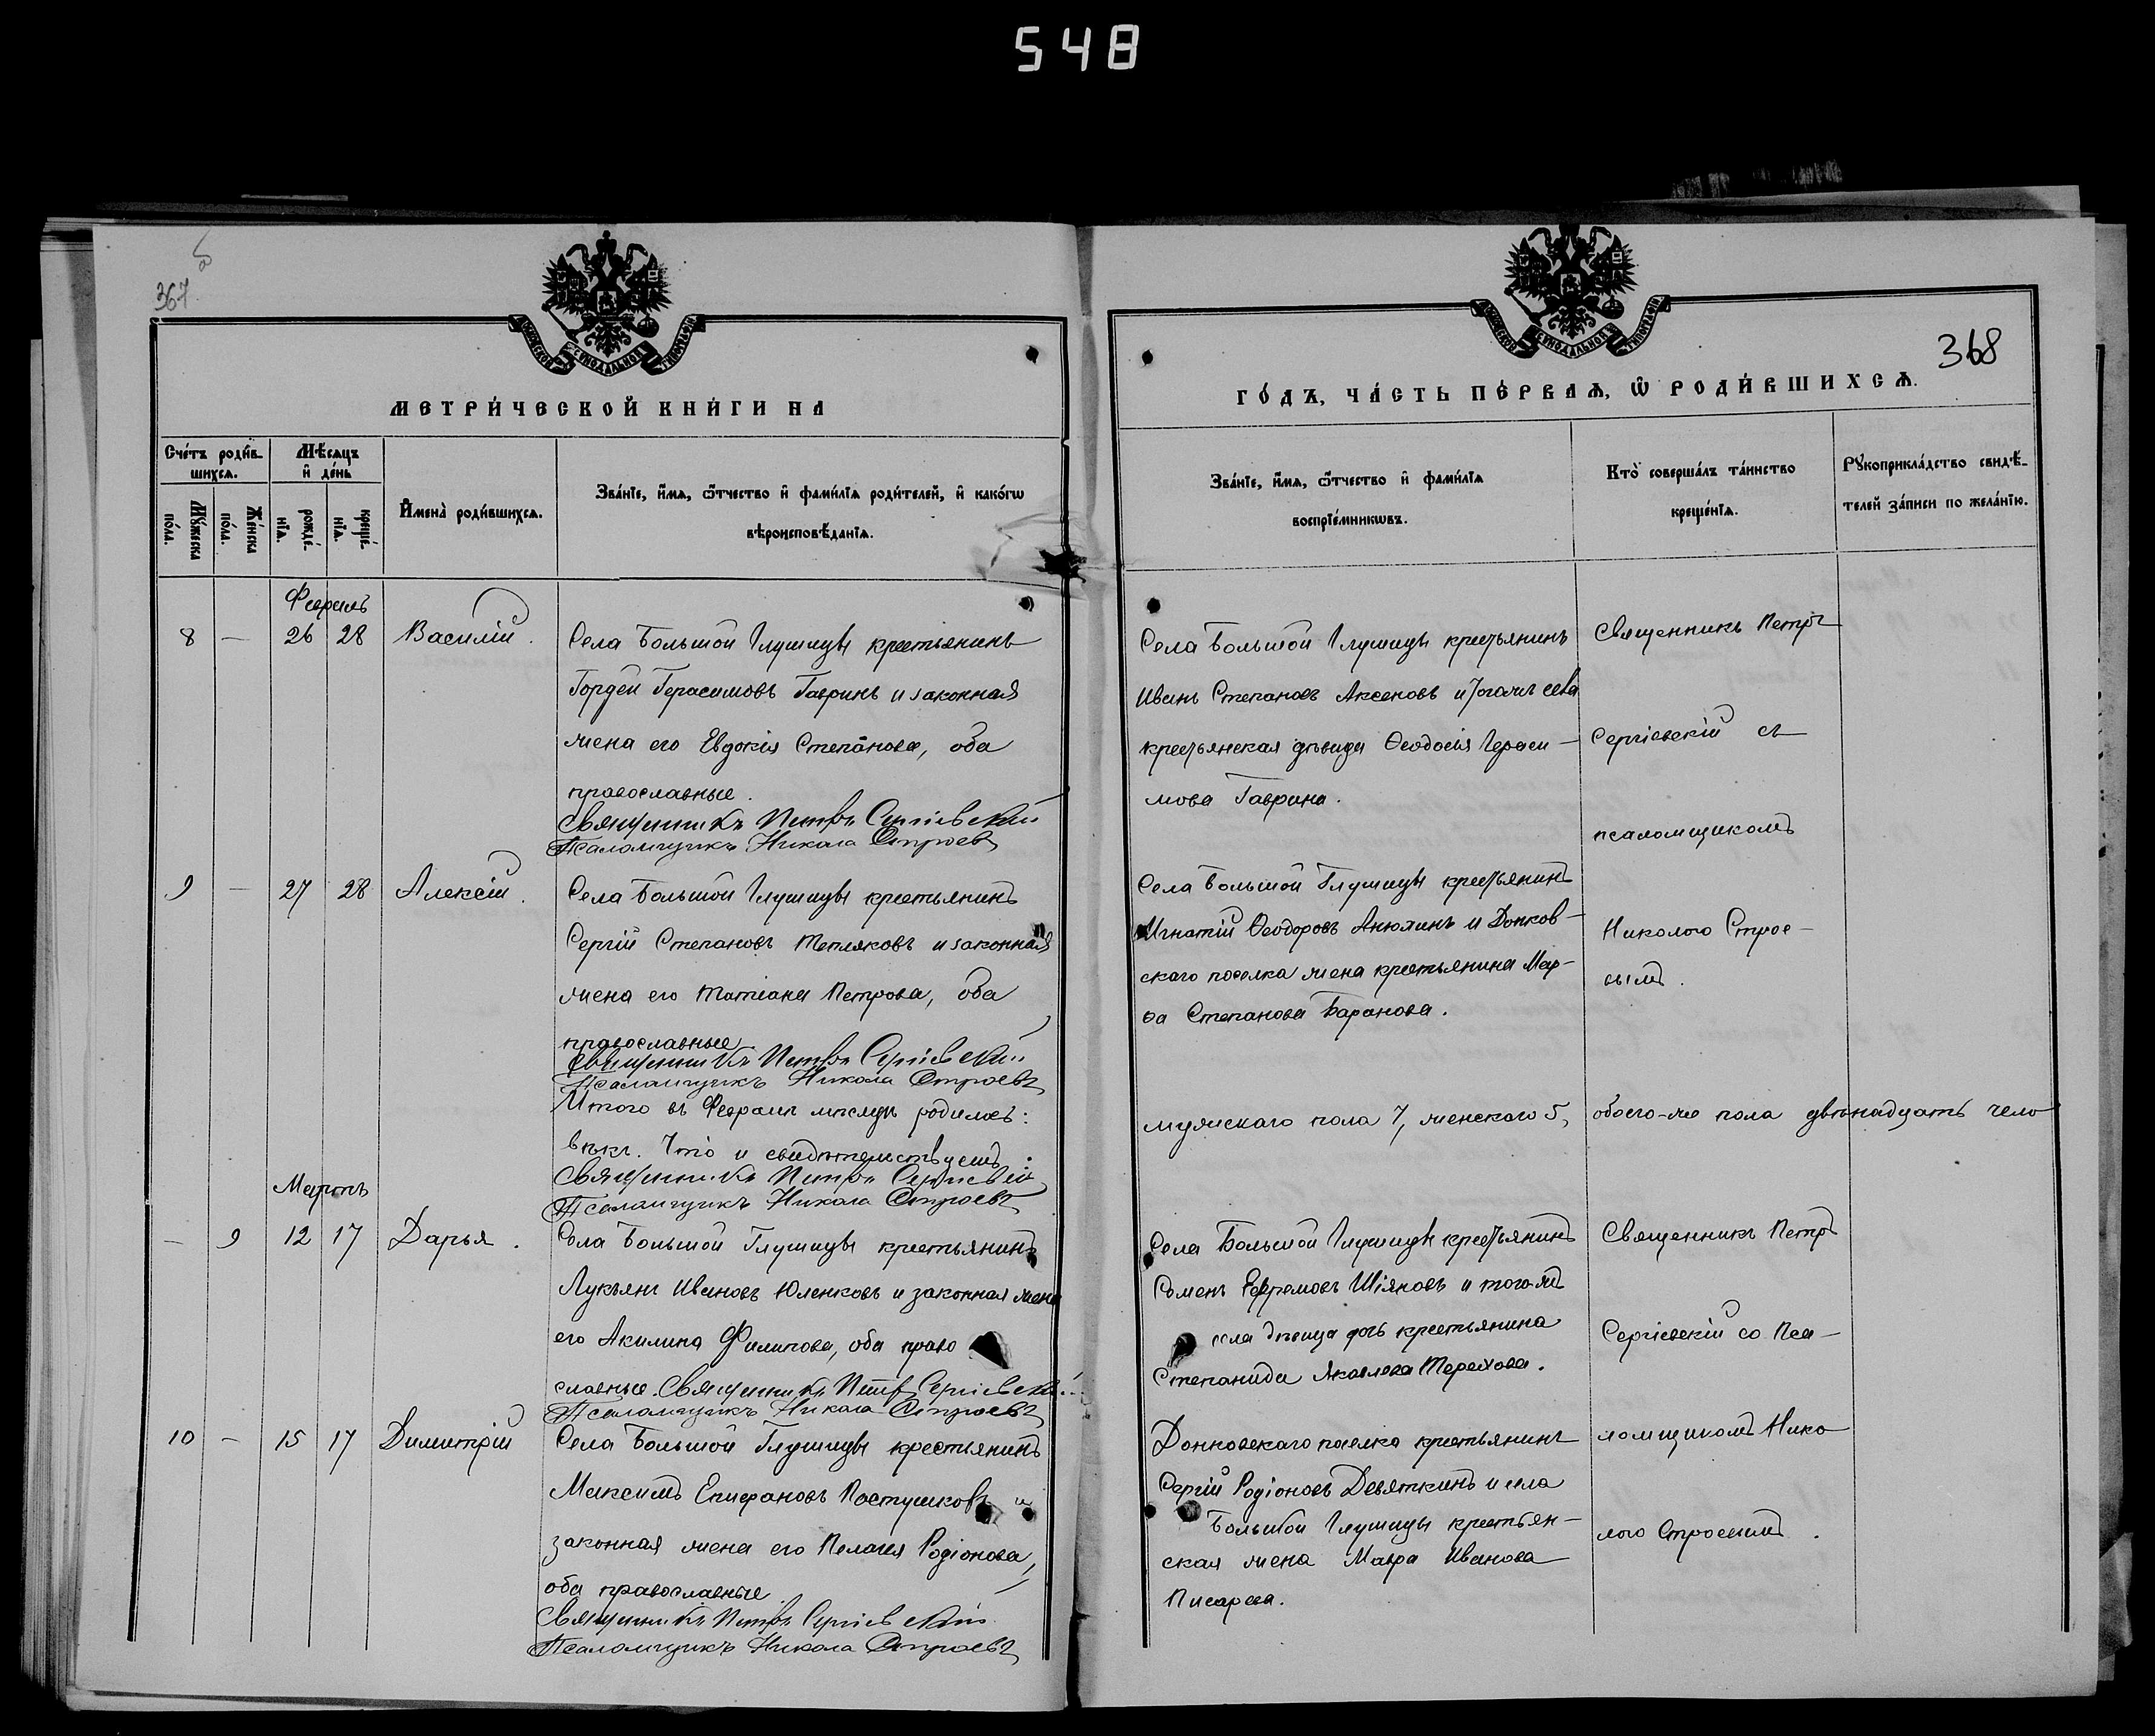 548
367
МОСКОВСКОЙ СѴНОДАЛЬНОЙ ТИПОГРАФІИ
МЕТРИ́ЧЕСКОЙ КНИ́ГИ НА
Сче́тъ роди́в-
шихся.
Мѣ́сяцъ
и҆ де́нь
Му́жеска
по́ла.
Же́нска
по́ла.
рожде́-
нїя.
креще́-
нїя.
И҆мена̀ роди́вшихся.
Зва́нїе, и҆́мя, ѻ҆́тчество и҆ фами́лїя роди́телей, и҆ како́гѡ
вѣроисповѣ́данїя.
Февраль
8 — 26 28 Василій.
Села Большой Глушицы крестьянинъ
Гордей Герасимовъ Гавринъ и законная
жена его Евдокія Степанова, оба
православные.
Священникъ Петръ Сергіевскій
Псаломщикъ Никола Строевъ
9 — 27 28 Алексій.
Села Большой Глушицы крестьянинъ
Сергій Степановъ Тепляковъ и законная
жена его Татіана Петрова, оба
православные
Священникъ Петръ Сергіевскій
Псаломщикъ Никола Строевъ
Итого въ Февралѣ мѣсяцѣ родилось:
вѣкъ. Что и свидѣтельствуемъ:
Священникъ Петръ Сергіевскій
Псаломщикъ Никола Строевъ
Мартъ
— 9 12 17 Дарья.
Села Большой Глушицы крестьянинъ
Лукьянъ Ивановъ Юленковъ и законная жена
его Акилина Филипова, оба право
славные. Священникъ Петръ Сергіевскій
Псаломщикъ Никола Строевъ
10 — 15 17 Димитрій
Села Большой Глушицы крестьянинъ
Максимъ Епифановъ Пастушковъ и
законная жена его Пелагея Родіонова,
оба православные.
Священникъ Петръ Сергіевскій
Псаломщикъ Никола Строевъ
МОСКОВСКОЙ СѴНОДАЛЬНОЙ ТИПОГРАФІИ
368
ГО́ДЪ, ЧА́СТЬ ПЕ́РВАЯ, Ѡ҆ РОДИ́ВШИХСЯ.
Зва́нїе, и҆́мя, ѻ҆́тчество и҆ фами́лїя
воспрїе́мникѡвъ.
Кто̀ соверша́лъ та́инство
креще́нїя.
Рꙋкоприкла́дство свидѣ́-
телей за́писи по жела́нїю.
Села Большой Глушицы крестьянинъ
Иванъ Степановъ Аксеновъ и тогожъ села
крестьянская дѣвица Ѳеодосія Гераси-
мова Гаврина.
Священникъ Петръ
Сергіевскій съ
псаломщикомъ
Николою Строе-
вымъ.
Села Большой Глушицы крестьянинъ
Игнатій Ѳеодоровъ Анюхинъ и Донков-
скаго поселка жена крестьянина Мар-
ѳа Степанова Баранова.
мужскаго пола 7, женскаго 5, обоего-же пола двѣнадцать чело
Села Большой Глушицы крестьянинъ
Семенъ Ефремовъ Шіяновъ и тогожъ
села дѣвица дочь крестьянина
Степанида Яковлева Терехова.
Священникъ Петръ
Сергіевскій со Пса-
ломщикомъ Нико
лою Строевымъ.
Донковскаго поселка крестьянинъ
Сергій Родіоновъ Девяткинъ и села
Большой Глушицы крестьян-
ская жена Мавра Иванова
Писарева.